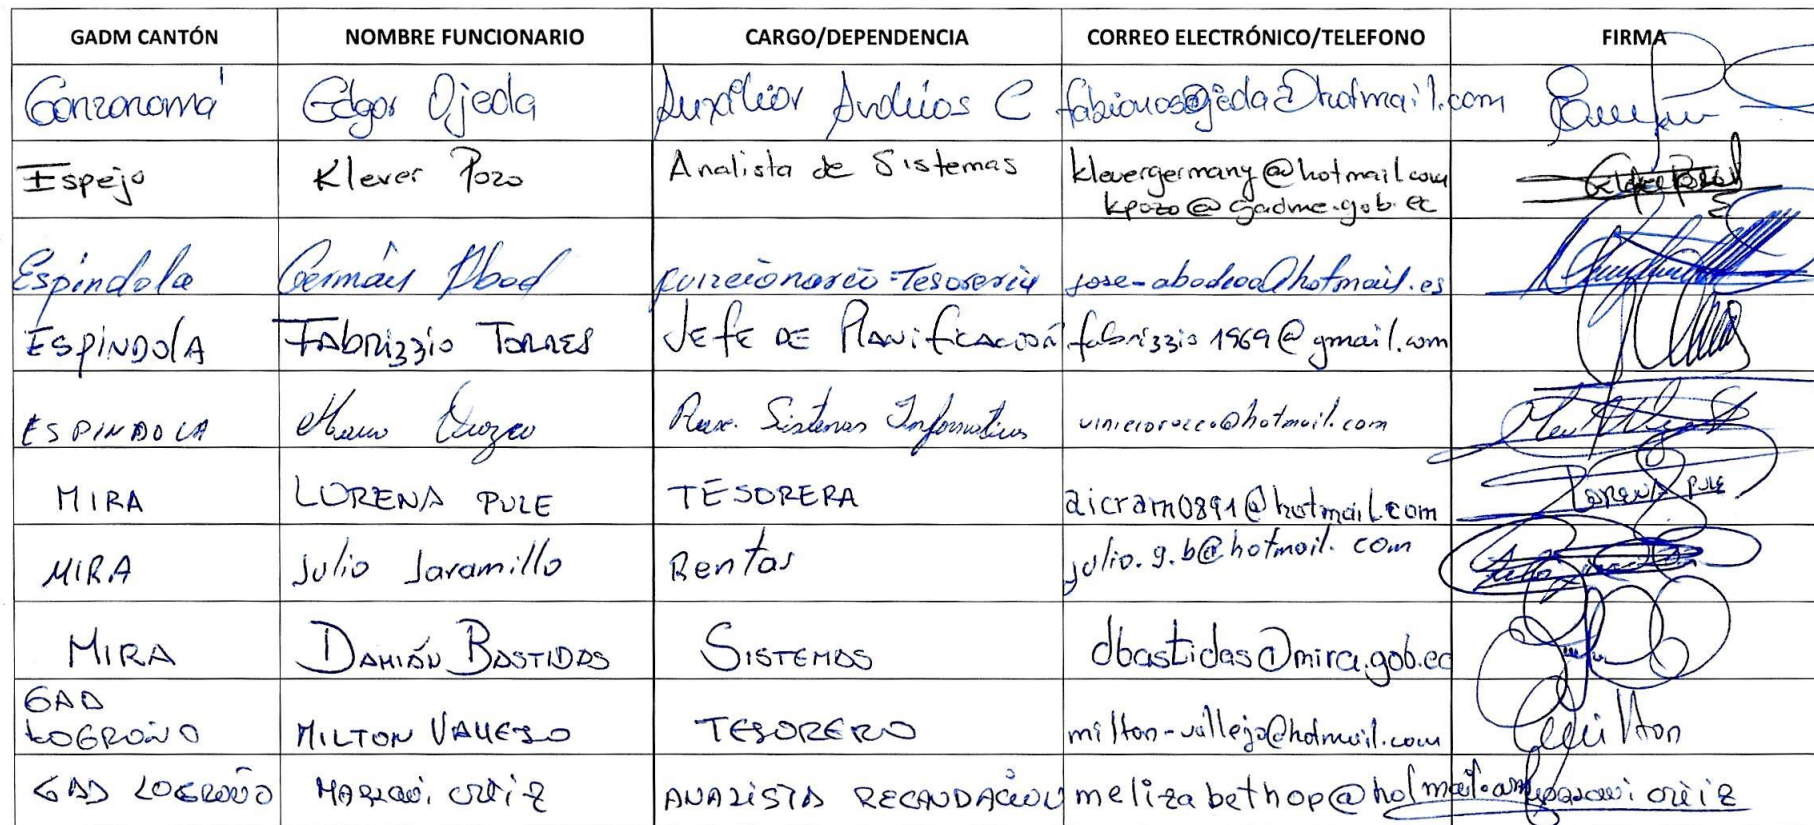 GADM CANTÓN NOMBRE FUNCIONARIO CARGO/DEPENDENCIA CORREO ELECTRÓNICO/TELEFONO FIRMA
Gonzanamá Edgar Ojeda Auxiliar Avalúos C
Espejo Klever Pozo Analista de Sistemas klevergermany@hotmail.com
kpozo@gadme.gob.ec
Espíndola Germán Abad funcionario-Tesorería
ESPÍNDOLA FAbRizzio TORRES JEFE DE PLANificACión fabrizzio1969@gmail.com
ESPINDOLA Orozco Aux. Sistemas Informaticos
MIRA LORENA PULE TESORERA aicram0891@hotmail.com LORENA PULE
MIRA Julio Jaramillo Rentas julio.g.b@hotmail.com
MIRA DAMIÁN BASTIDAS SISTEMAS dbastidas@mira.gob.ec
GAD
LOGROÑO MILTON VALLEJO TESORERO milton-vallejo@hotmail.com Milton
GAD LOGROÑO MARICUi ORTiZ ANALISTA RECAUDACIÓN melizabethop@hotmail.com ORTiZ